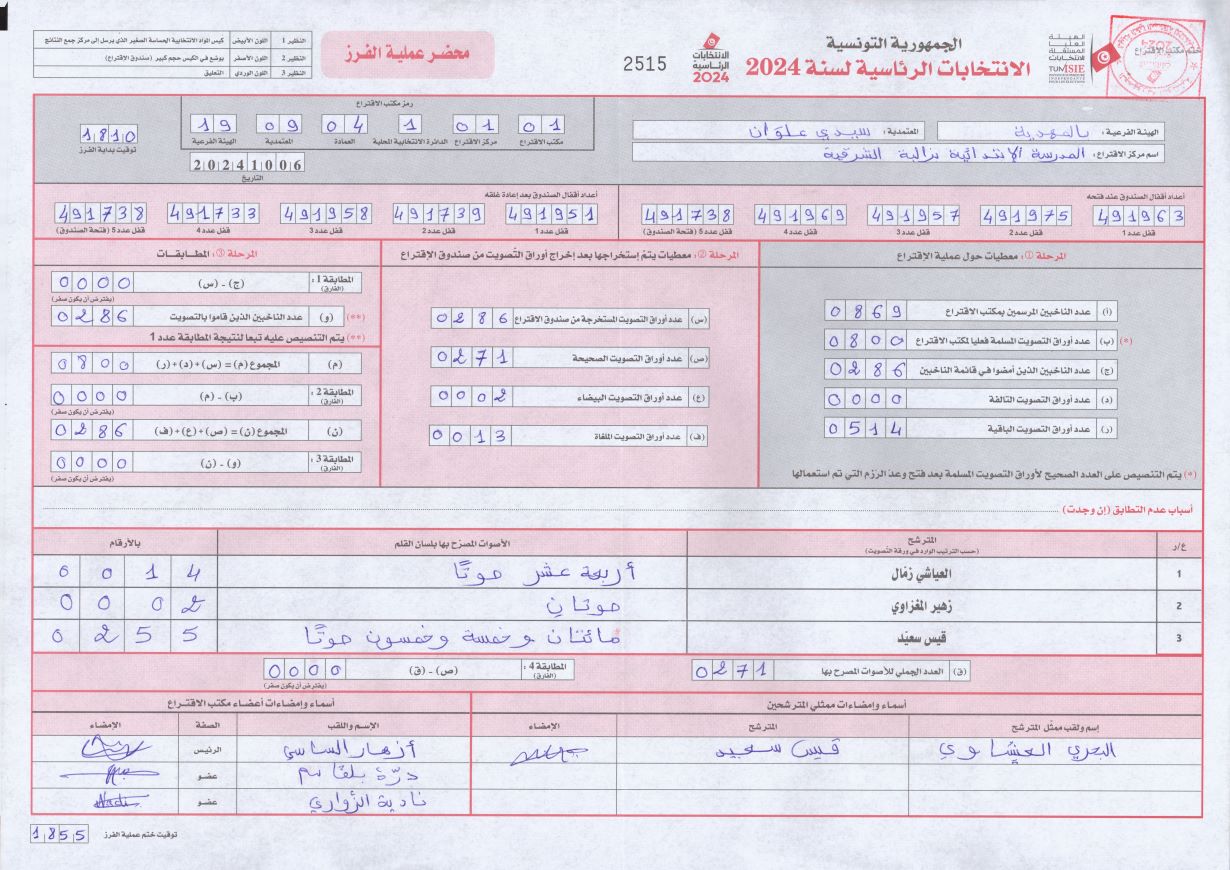 الجمهورية التونسية
الانتخابات الرئاسية لسنة 2024
الهيئة العليا المستقلة للانتخابات
ختم مكتب الاقتراع
الانتخابات الرئاسية 2024
2515
محضر عملية الفرز
النظير 1 اللون الأبيض كيس المواد الانتخابية الحساسة الصغير الذي يرسل إلى مركز جمع النتائج
النظير 2 اللون الأصفر يوضع في الكيس حجم كبير (صندوق الاقتراع)
النظير 3 اللون الوردي التعليق
الهيئة الفرعية : بالمهدية المعتمدية : سيدي علوان
اسم مركز الاقتراع : المدرسة الابتدائية نزالبة الشرقية
رمز مكتب الاقتراع
01 01 1 04 09 19
مكتب الاقتراع مركز الاقتراع الدائرة الانتخابية المحلية العمادة المعتمدية الهيئة الفرعية
20241006
التاريخ
1810
توقيت بداية الفرز
أعداد أقفال الصندوق عند فتحه
491963 491975 491957 491969 491738
قفل عدد 1 قفل عدد 2 قفل عدد 3 قفل عدد 4 قفل عدد 5 (فتحة الصندوق)
أعداد أقفال الصندوق بعد إعادة غلقه
491951 491739 491958 491733 491738
قفل عدد 1 قفل عدد 2 قفل عدد 3 قفل عدد 4 قفل عدد 5 (فتحة الصندوق)
المرحلة ①: معطيات حول عملية الاقتراع
(أ) عدد الناخبين المرسمين بمكتب الاقتراع 0869
(*) (ب) عدد أوراق التصويت المسلمة فعليا لمكتب الاقتراع 0800
(ج) عدد الناخبين الذين أمضوا في قائمة الناخبين 0286
(د) عدد أوراق التصويت التالفة 0000
(ر) عدد أوراق التصويت الباقية 0514
(*) يتم التنصيص على العدد الصحيح لأوراق التصويت المسلمة بعد فتح وعد الرزم التي تم استعمالها
المرحلة ②: معطيات يتم إستخراجها بعد إخراج أوراق التصويت من صندوق الإقتراع
(س) عدد أوراق التصويت المستخرجة من صندوق الاقتراع 0286
(ص) عدد أوراق التصويت الصحيحة 0271
(ع) عدد أوراق التصويت البيضاء 0002
(ف) عدد أوراق التصويت الملغاة 0013
المرحلة ③: المطابقات
المطابقة 1 : (الفارق) (ج) - (س) 0000
(يفترض أن يكون صفر)
(**) (و) عدد الناخبين الذين قاموا بالتصويت 0286
(**) يتم التنصيص عليه تبعا لنتيجة المطابقة عدد 1
(م) المجموع (م) = (س)+(د)+(ر) 0800
المطابقة 2 : (الفارق) (ب) - (م) 0000
(يفترض أن يكون صفر)
(ن) المجموع (ن) = (ص)+(ع)+(ف) 0286
المطابقة 3 : (الفارق) (و) - (ن) 0000
(يفترض أن يكون صفر)
أسباب عدم التطابق (إن وجدت)
ع/ر المترشح (حسب الترتيب الوارد في ورقة التصويت) الأصوات المصرّح بها بلسان القلم بالأرقام
1 العياشي زمّال أربعة عشر صوتًا 0014
2 زهير المغزاوي صوتان 0002
3 قيس سعيّد مائتان وخمسة وخمسون صوتًا 0255
(ق) العدد الجملي للأصوات المصرح بها 0271
المطابقة 4 : (الفارق) (ص) - (ق) 0000
(يفترض أن يكون صفر)
أسماء وإمضاءات ممثلي المترشحين
إسم ولقب ممثّل المترشح المترشح الإمضاء
العيشاوي قيس سعيد
أسماء وإمضاءات أعضاء مكتب الاقتراع
الاسم واللقب الصفة الإمضاء
أزهار الساسي الرئيس
درّة بلقاسم عضو
نادية الزواري عضو
توقيت ختم عملية الفرز 1855